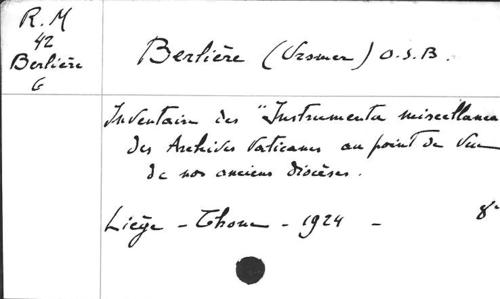 R. M
42
Berlière
G
Berlière (Ursmer) O.S.B.
Inventaire des "Instrumenta miscellanea
des Archives Vaticanes au point de vue
de nos anciens diocèses.
Liège - Thone - 1924 - 8°